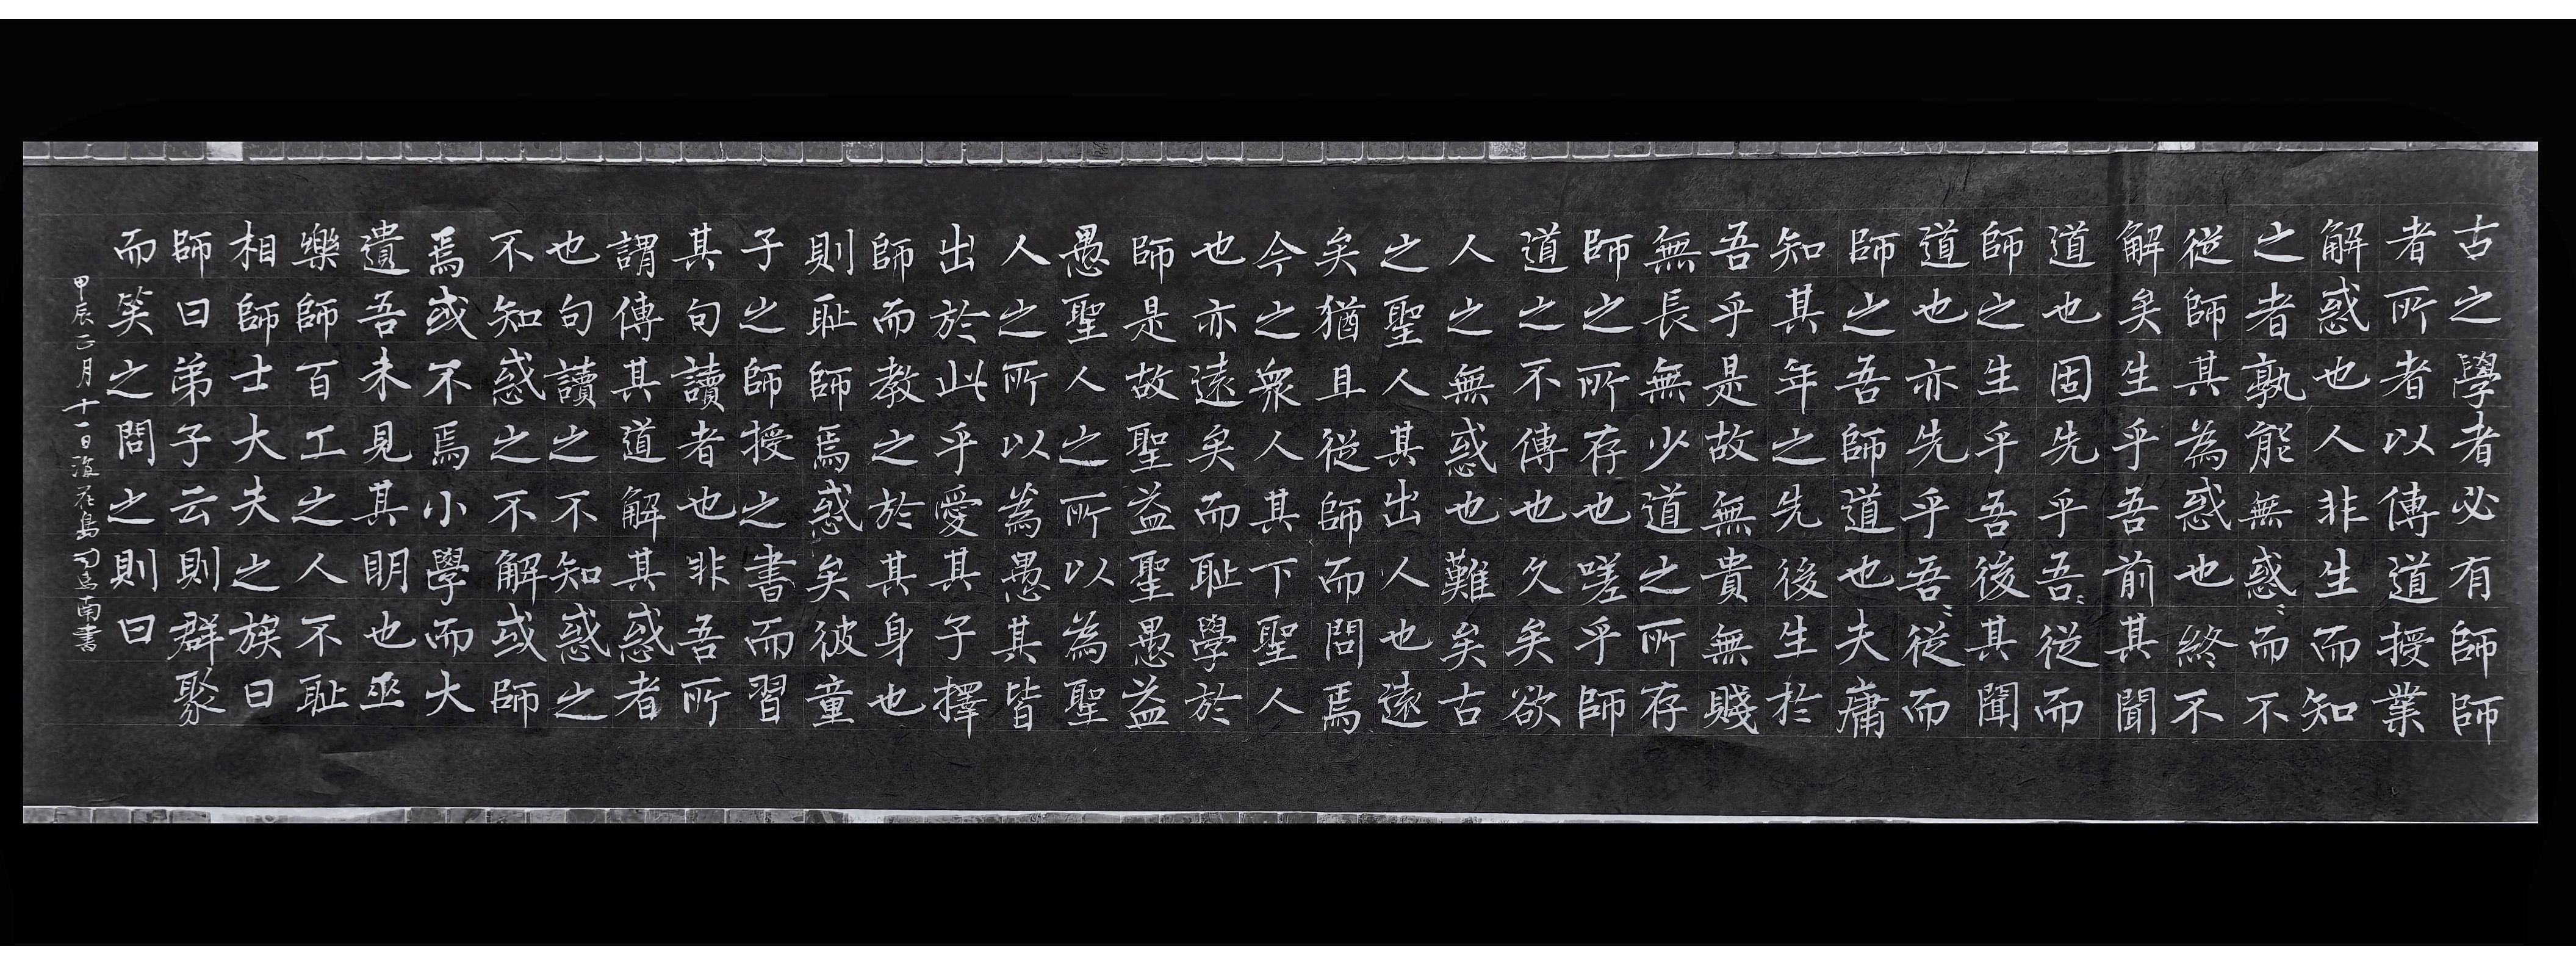 古之學者必有師師
者所者以傳道授業
解惑也人非生而知
之者孰能無惑〻而不
從師其為惑也終不
解矣生乎吾前其聞
道也固先乎吾〻從而
師之生乎吾後其聞
道也亦先乎吾〻從而
師之吾師道也夫庸
知其年之先後生於
吾乎是故無貴無賤
無長無少道之所存
師之所存也嗟乎師
道之不傳也久矣欲
人之無惑也難矣古
之聖人其出人也遠
矣猶且從師而問焉
今之衆人其下聖人
也亦遠矣而耻學於
師是故聖益聖愚益
愚聖人之所以為聖
人之所以為愚其皆
出於此乎愛其子擇
師而教之於其身也
則耻師焉惑矣彼童
子之師授之書而習
其句讀者也非吾所
謂傳其道解其惑者
也句讀之不知惑之
不知惑之不解或師
焉或不焉小學而大
遺吾未見其明也巫
樂師百工之人不耻
相師士大夫之族曰
師曰弟子云則群聚
而笑之問之則曰
甲辰正月十一日海花島司馬南書